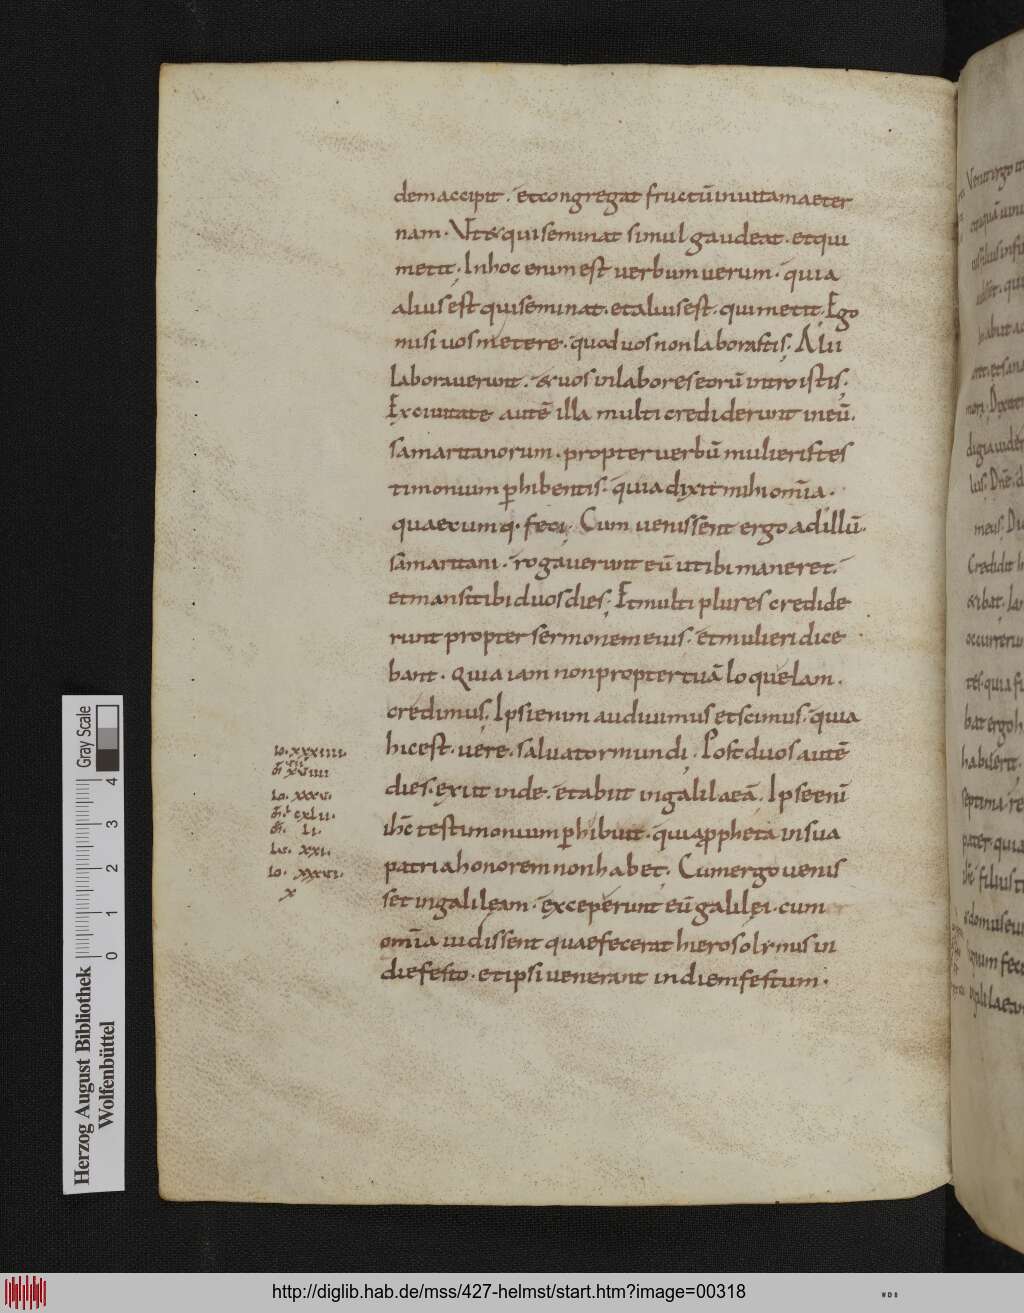 dem accipit. et congregat fructū in vitam aeter
nam. Ut & qui seminat simul gaudeat. et qui
metit. In hoc enim est verbum verum. quia
alius est qui seminat. et alius est. qui metit. Ego
misi vos metere. quod vos non laborastis. Alii
laboraverunt. & vos in labores eorū introistis.
Ex civitate autē illa multi crediderunt in eū.
samaritanorum. propter verbū mulieris tes
timonium phibentis. quia dixit mihi omīa.
quaecumq. feci. Cum venissent ergo ad illū.
samaritani. rogaverunt eū ut ibi maneret.
et mansit ibi duos dies. Et multi plures credide
runt propter sermonem eius. et mulieri dice
bant. Quia iam non propter tuā loquelam.
credimus. Ipsi enim audivimus et scimus. quia
hic est. vere. salvator mundi. Post duos autē
dies. exiit inde. et abiit in galilaeā. Ipse enī
ihc testimonium phibuit. quia ppheta in sua
patria honorem non habet. Cum ergo venis
set in galileam. exceperunt eū galilei. cum
omīa vidissent quae fecerat hierosolymis in
die festo. et ipsi venerant in diem festum.
Io. xxxiiii.
Io. xxxv.
mt cxlii.
mr. li.
Luc. xxi.
Io. xxxvi.
x
Gray Scale
0 1 2 3 4
Herzog August Bibliothek
Wolfenbüttel
http://diglib.hab.de/mss/427-helmst/start.htm?image=00318